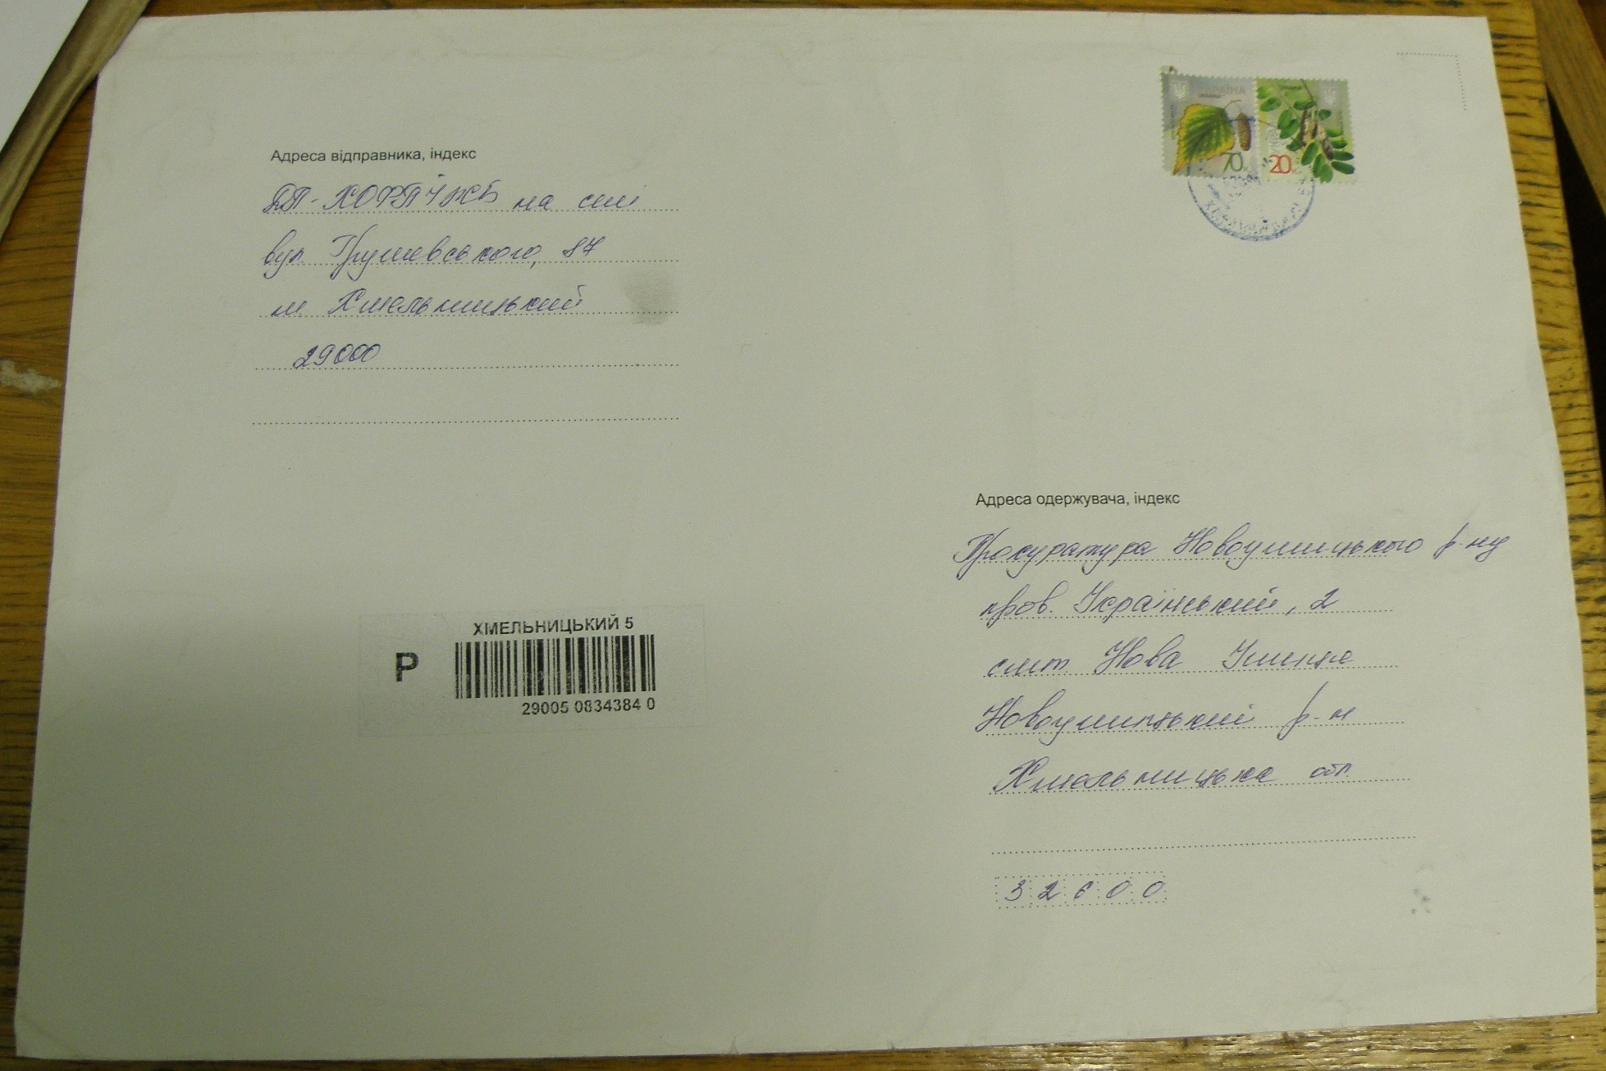 УКРАЇНА
70
20
Адреса відправника, індекс
ДП-ХОФПЧНСБ на сті
вул Грушевського, 87
м. Хмельницький
29000
Адреса одержувача, індекс
Прокуратура Новоушицького р-ну
пров. Український, 2
смт. Нова Ушиця
Новоушицький р-н
Хмельницька обл.
32600
ХМЕЛЬНИЦЬКИЙ 5
Р
29005 0834384 0